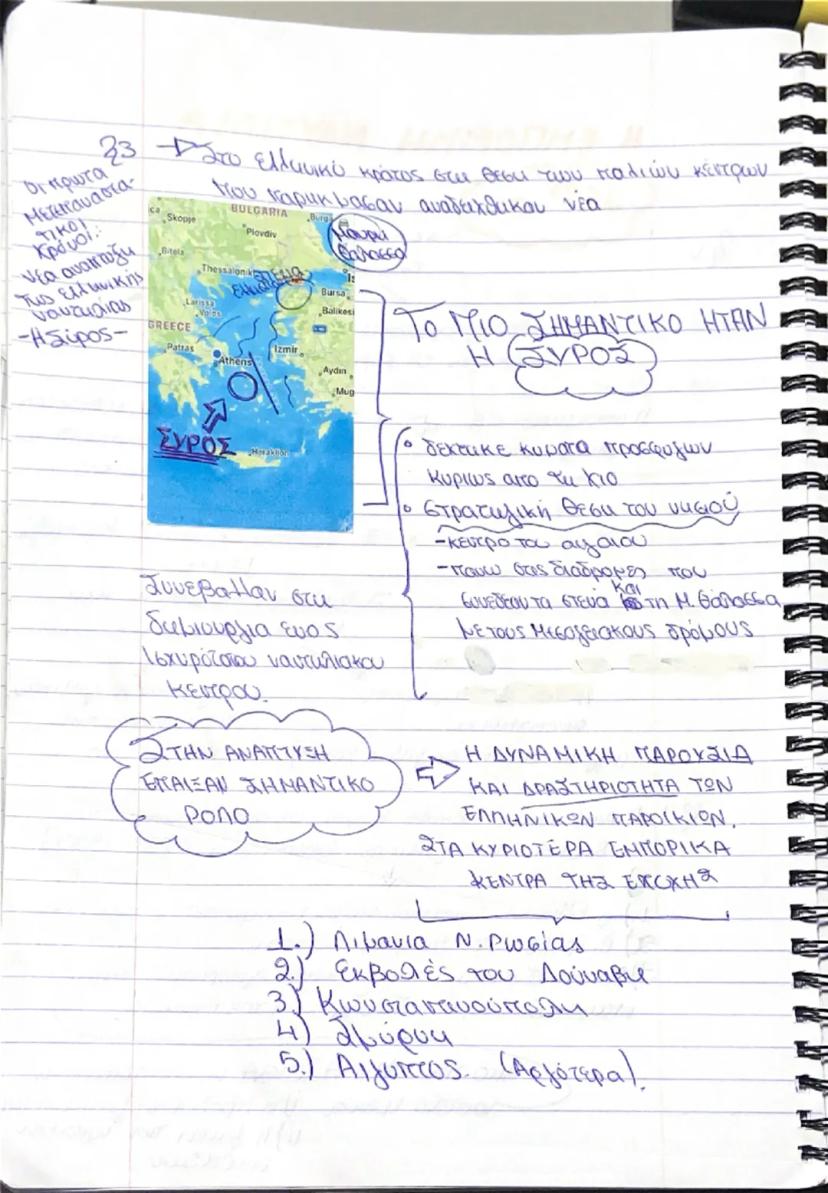 23
Οι πρωτα
Μετεπαναστα-
τικοί
Χρόνοι:
νέα αναπτυξη
της ελληνικής
ναυτιλίας
-Η Σύρος-
Στο ελληνικό κράτος στη θεση των παλιών κέντρων
που παρηκμασαν αναδειχθηκαν νέα
Skopje
BULGARIA
Burg
Plovdiv
Μαυρη
Θάλασσα
Bitola
Thessalonik
Στενα
Bursa
Larissa
Volos
Balikesi
GREECE
Patras
Athens
Izmir
Aydin
Mug
ΣΥΡΟΣ
Heraklion
ΤΟ ΠΙΟ ΣΗΜΑΝΤΙΚΟ ΗΤΑΝ
Η ΣΥΡΟΣ
δεχτηκε κυματα προσφυγων
κυριως απο τη Χιο
στρατηγική θεση του νησιού
-κεντρο του αιγαιου
-πανω στις διαδρομες που
συνεδεαν τα στενά και τη Μ. Θάλασσα
με τους Μεσογειακους δρόμους
Συνεβαλλαν στη
δημιουργια ενος
Ισχυρότατου ναυτιλιακου
κεντρου.
ΣΤΗΝ ΑΝΑΠΤΥΞΗ
ΕΠΑΙΞΑΝ ΣΗΜΑΝΤΙΚΟ
ΡΟΛΟ
Η ΔΥΝΑΜΙΚΗ ΠΑΡΟΥΣΙΑ
ΚΑΙ ΔΡΑΣΤΗΡΙΟΤΗΤΑ ΤΩΝ
ΕΛΛΗΝΙΚΩΝ ΠΑΡΟΙΚΙΩΝ.
ΣΤΑ ΚΥΡΙΟΤΕΡΑ ΕΜΠΟΡΙΚΑ
ΚΕΝΤΡΑ ΤΗΣ ΕΠΟΧΗΣ
1.) Λιμανια Ν. Ρωσίας
2.) Εκβολές του Δούναβη
3.) Κωνσταντινούπολη
4.) Σμύρνη
5.) Αιγυπτος. (Αργότερα).